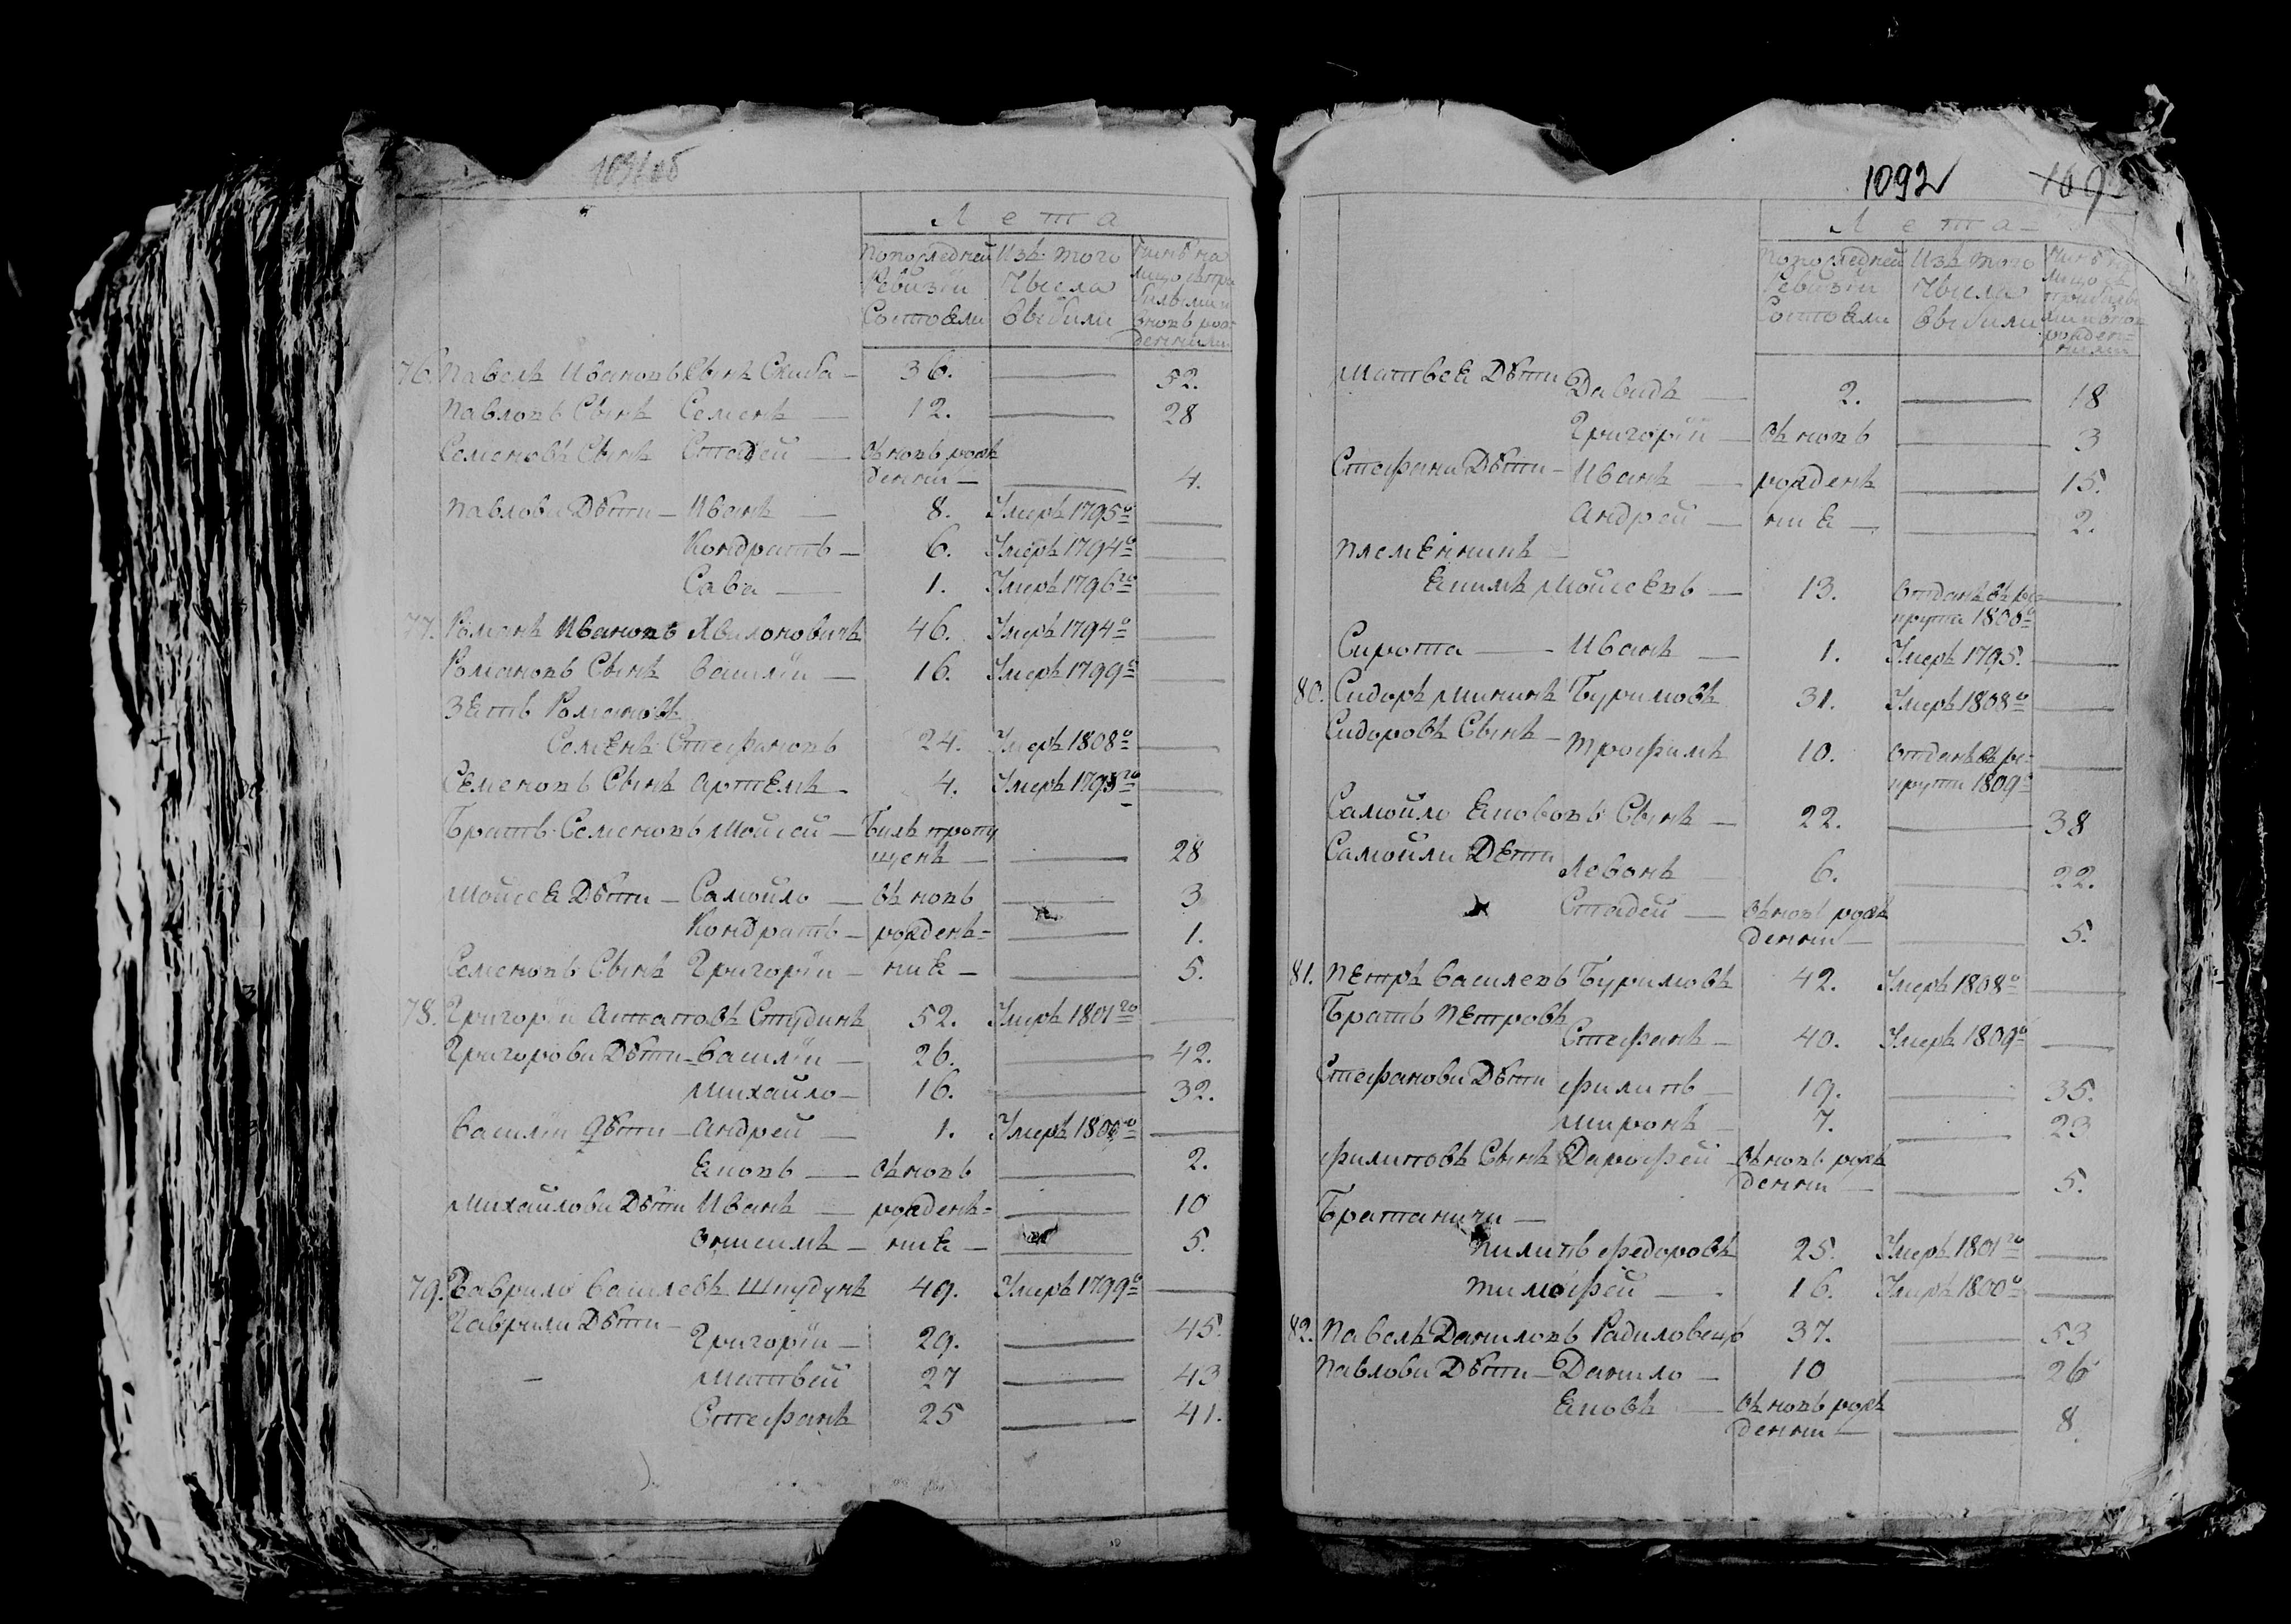 1091об
Лета
Попоследней Изъ того нинѣ на
Ревизїи Числа лицо съпри
Состояли Выбыли былыми и
вновь рож
денными
76. Павелъ Ивановъ Сынъ Скиба — 36. — 52.
Павловъ Сынъ Семенъ — 12. — 28
Семеновъ Сынъ Стадей — вновь рож
денни — — 4.
Павлови Дѣти — Иванъ — 8. Умеръ 1795го —
Кондрать — 6. Умеръ 1794го —
Сава — 1. Умеръ 1796го —
77. Романъ Ивановъ Хвилоновичъ 46. Умеръ 1794го —
Романовъ Сынъ Василїй — 16. Умеръ 1799го —
Зять Романовъ
Семенъ Стефановъ 24. Умеръ 1808го —
Семеновъ Сынъ Артемъ — 4. Умеръ 1795го —
Братъ Семеновъ Мойсей — Билъ пропу
щенъ — — 28
Мойсея Дѣти — Самойло — вновь — 3
Кондрать — рожденъ= — 1.
Семеновъ Сынъ Григорїй — ния — — 5.
78. Григорїй Аптаповъ Студинъ 52. Умеръ 1801го —
Григорови Дѣти — Василїй — 26. — 42.
Михайло — 16. — 32.
Василїи Дѣти — Андрей — 1. Умеръ 1800го —
Яковъ — вновь — 2.
Михайлови Дѣти Иванъ — рожденъ= — 10
Онисимъ — ния — — 5.
79. Гаврило Василевъ Шпудунъ 49. Умеръ 1799го —
Гаврили Дѣти —
Григорїй — 29. — 45.
— Матвей 27 — 43
Стефанъ 25 — 41.
1092 109
Лета
Попоследней Изъ того нинѣ на
Ревизїи Числа лицо съ
Состояли Выбыли прибылы
ми ивнов
рожден=
ними
Матвея Дѣти Давидъ — 2. — 18
Григорїй — вновь — 3
Стефани Дѣти — Иванъ — рожденъ — 15.
Андрей — ния — — 2.
Племянникъ —
Якимъ Мойсеевъ — 13. Отданъ въ ре —
крути 1806го
Сирота — Иванъ — 1. Умеръ 1795. —
80. Сидоръ Мининъ Буримовъ 31. Умеръ 1808го —
Сидоровъ Сынъ — Трофимъ 10. Отданъ въ ре= —
крути 1809го
Самойло Якововъ Сынъ — 22. — 38
Самойли Дѣти
Левонъ — 6. — 22.
Стадей — вновь рож
денни — — 5.
81. Петръ Василевъ Буримовъ 42. Умеръ 1808го —
Братъ Петровъ
Стефанъ — 40. Умеръ 1809го —
Стефанови Дѣти Филипъ — 19. — 35.
Миронъ — 7. — 23
Филиповъ Сынъ Дарофей вновь рож
денни — — 5.
Братаничи —
Пилипъ Федоровъ 25. Умеръ 1801го —
Тимофей — 16. Умеръ 1800го —
82. Павелъ Даниловъ Радиловецъ 37. — 53
Павлови Дѣти — Данило — 10 — 26
Яковъ — вновь рож
денни — — 8.